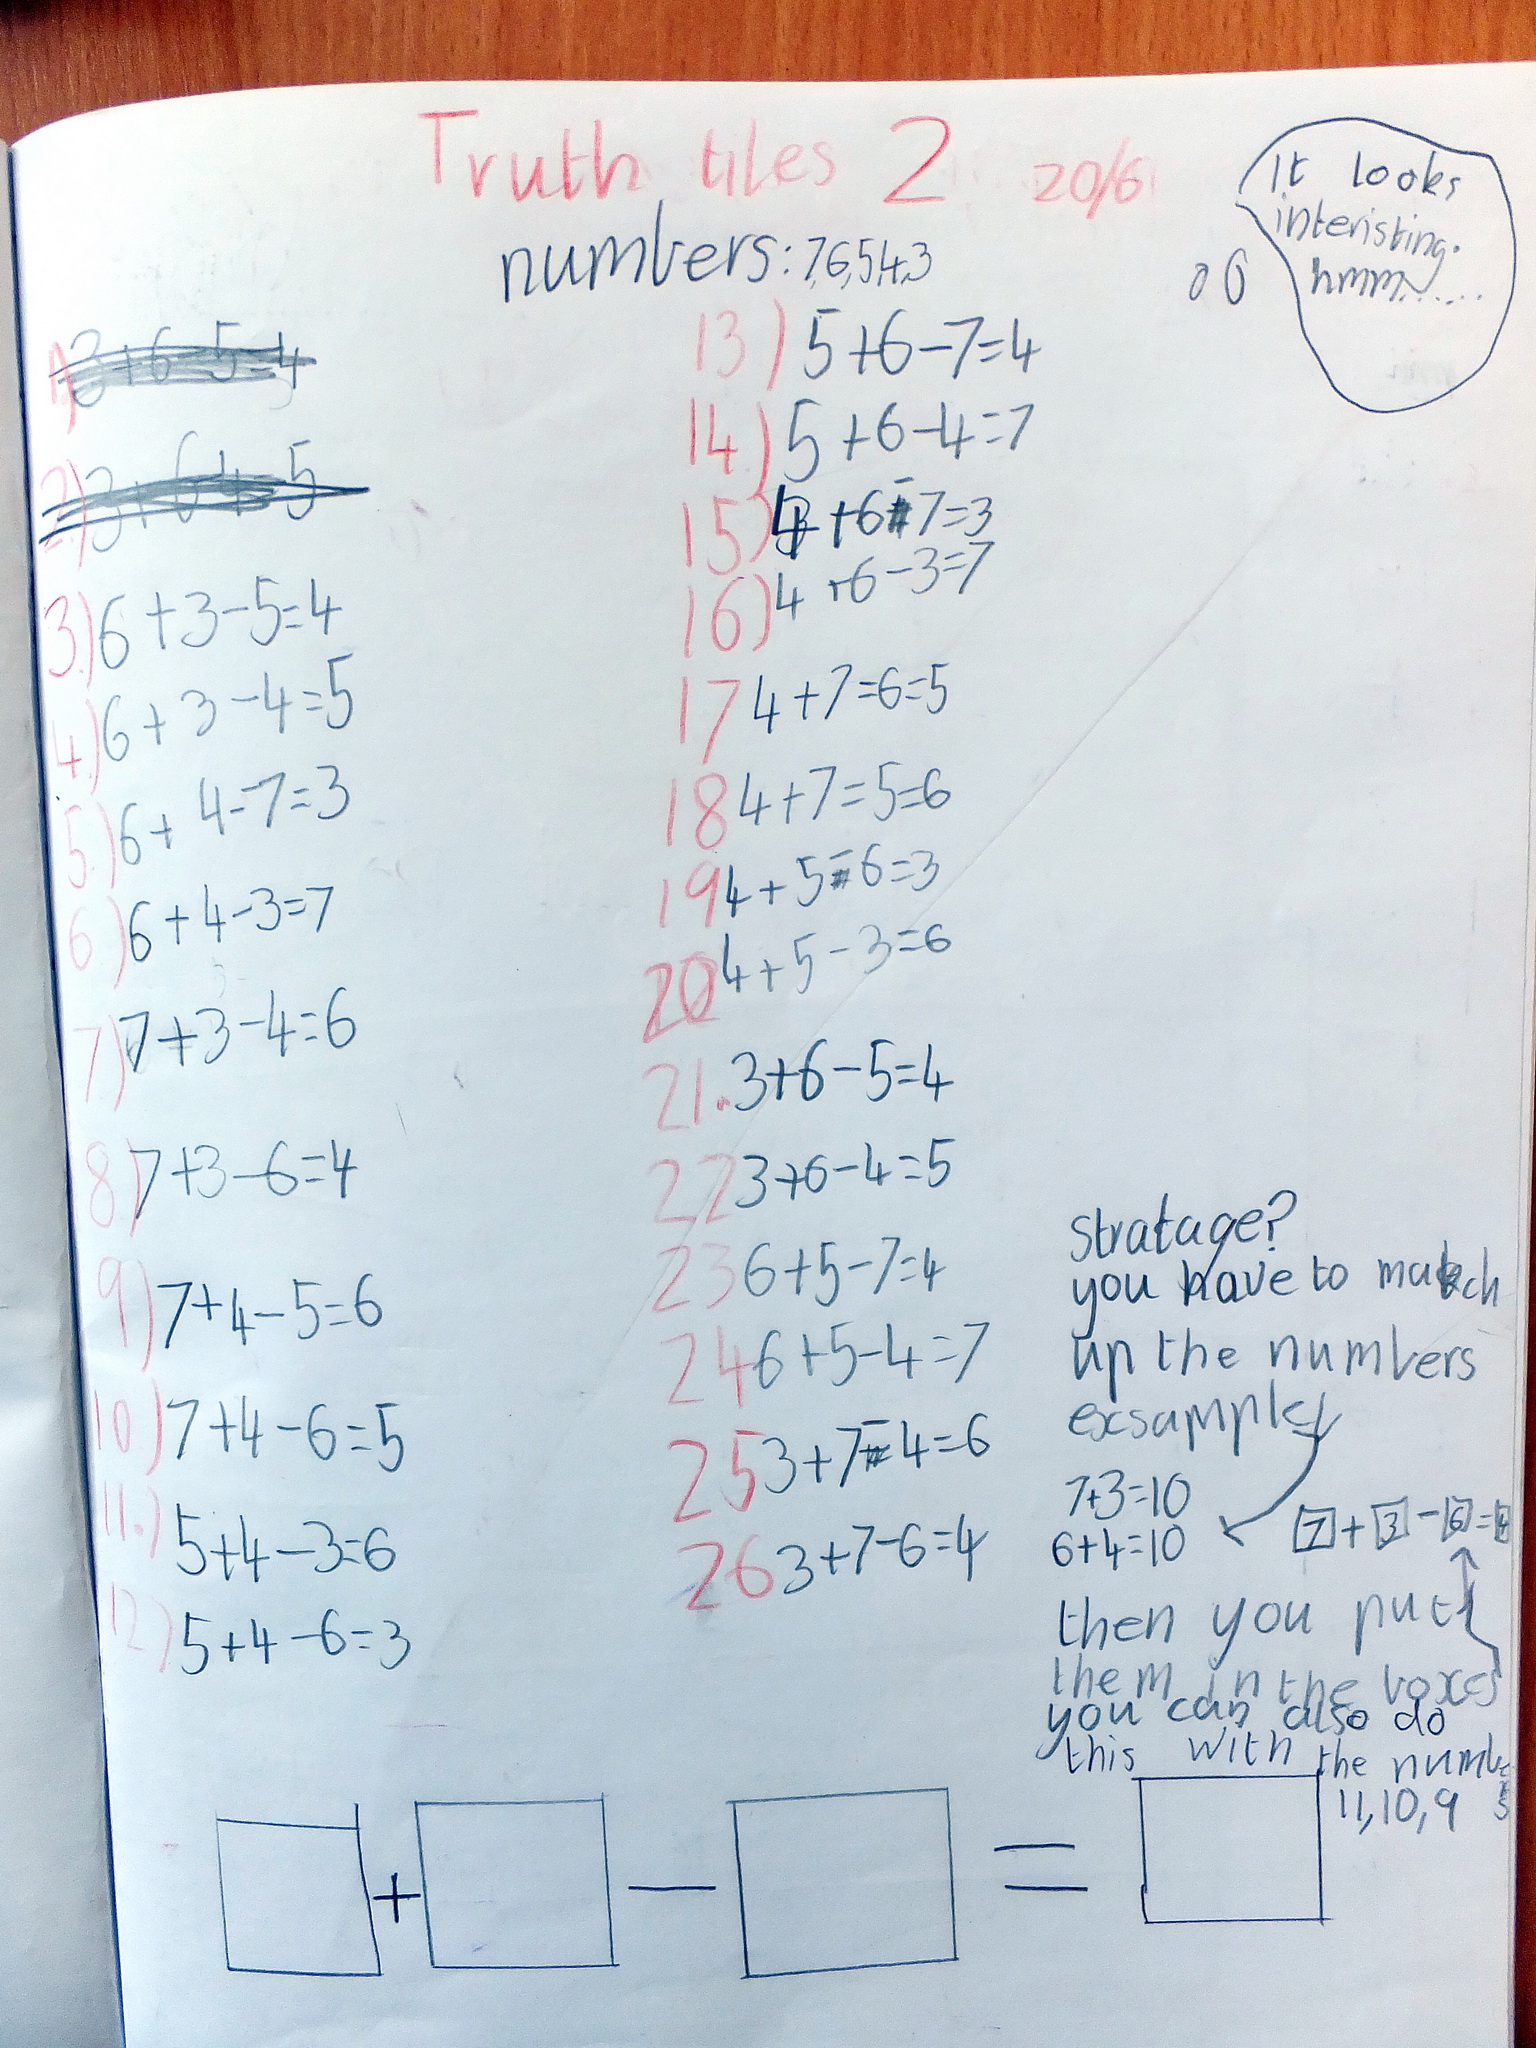 Truth tiles 2 20/6
numbers: 7,6,5,4,3
It looks
interisting.
hmm......
1) 3+6-5=4
2.) 3+6-4=5
3.) 6+3-5=4
4.) 6+3-4=5
5.) 6+4-7=3
6.) 6+4-3=7
7.) 7+3-4=6
8.) 7+3-6=4
9) 7+4-5=6
10.) 7+4-6=5
11.) 5+4-3=6
12.) 5+4-6=3
13.) 5+6-7=4
14.) 5+6-4=7
15) 4+6-7=3
16) 4+6-3=7
17 4+7=6=5
18 4+7=5=6
19 4+5-6=3
20 4+5-3=6
21. 3+6-5=4
22 3+6-4=5
23 6+5-7=4
24 6+5-4=7
25 3+7-4=6
26 3+7-6=4
stratage?
you have to match
up the numbers
exsample
7+3=10
6+4=10
7+3-6=4
then you put
them in the boxes
you can also do
this with the numbers
11,10,9
+ - =